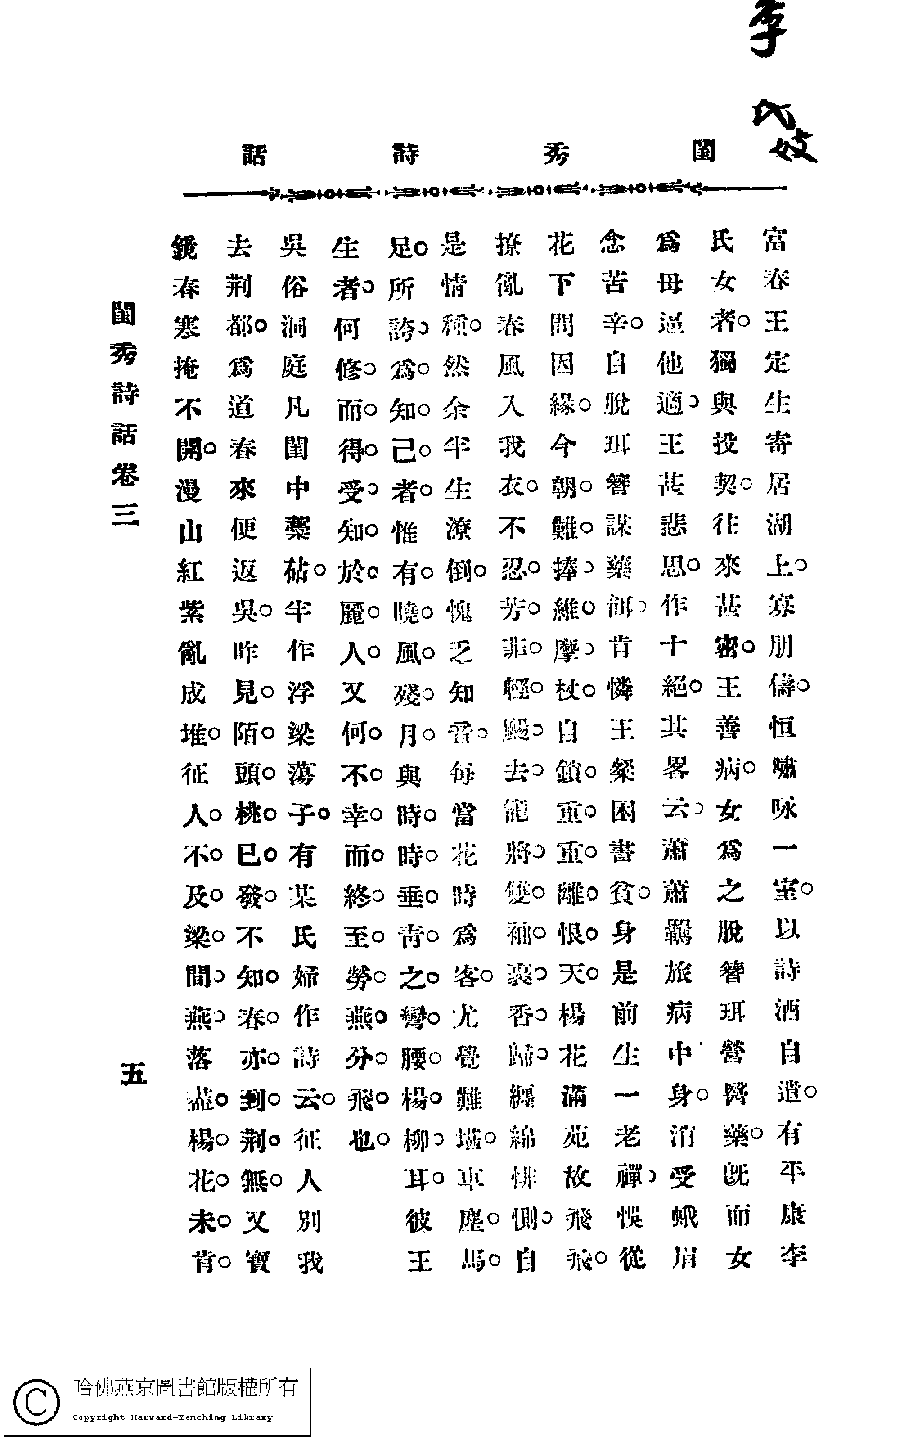 李氏妓
閨秀詩話
富春王定生寄居湖上。寡朋儔。恒嘯咏一室。以詩酒自遣。有平康李
氏女者。獨與投契。往來甚密。王善病。女爲之脫簪珥營醫藥。旣而女
爲母逼他適。王甚悲思。作十絕。其畧云。蕭蕭羈旅病中身。消受蛾眉
念苦辛。自脫珥簪謀藥餌。肯憐王粲困書貧。身是前生一老禪。悞從
花下問因緣。今朝難捧維摩杖。自鎖重重離恨天。楊花滿苑故飛飛。
撩亂春風入我衣。不忍芳菲輕颺去。籠將雙袖裹香歸。纏綿悱惻。自
是情種。然余半生潦倒。愧乏知音。每當花時爲客。尤覺難堪。車塵馬
足。所誇爲知己者。惟有曉風殘月。與時時垂青之彎腰楊柳耳。彼王
生者。何修而得受知於麗人。又何不幸而終至勞燕分飛也。
吳俗洞庭凡閨中藁砧。半作浮梁蕩子。有某氏婦作詩云。征人別我
去荆都。爲道春來便返吳。昨見陌頭桃已發。不知春亦到荆無。又寶
鏡春寒掩不開。漫山紅紫亂成堆。征人不及梁間燕。落盡楊花未肯。
閨秀詩話卷三
五
哈佛燕京圖書館版權所有
Copyright Harvard-Yenching Library